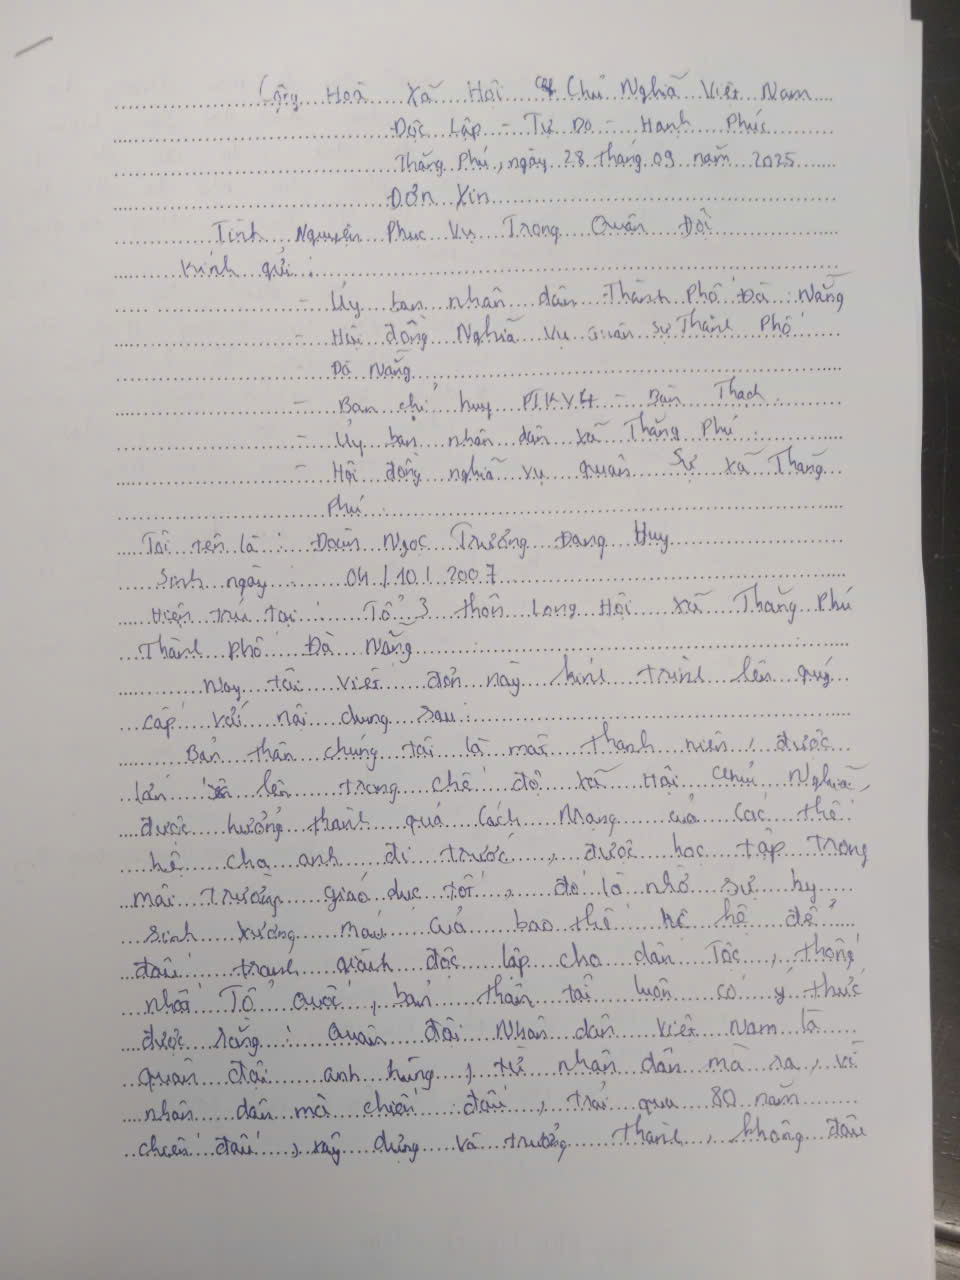 Cộng Hoà Xã Hội Chủ Nghĩa Việt Nam
Độc Lập - Tự Do - Hạnh Phúc
Thăng Phú, ngày 28 tháng 09 năm 2025
Đơn Xin
Tình Nguyện Phục Vụ Trong Quân Đội
Kính gửi :
- Ủy ban nhân dân Thành Phố Đà Nẵng
- Hội đồng Nghĩa vụ quân sự Thành Phố
Đà Nẵng
- Ban chỉ huy PTKV4 - Bàn Thạch
- Ủy ban nhân dân xã Thăng Phú
- Hội đồng nghĩa vụ quân sự xã Thăng
Phú .
Tôi tên là : Đoàn Ngọc Trường Đang Huy
Sinh ngày : 04/10/2007
Hiện trú tại : Tổ 3 thôn Long Hội xã Thăng Phú
Thành Phố Đà Nẵng
Nay tôi viết đơn này kính trình lên quý
cấp với nội dung sau :
Bản thân chúng tôi là một thanh niên, được
lớn lên trong chế độ xã Hội Chủ Nghĩa,
được hưởng thành quả Cách Mạng của các thế
hệ cha anh đi trước, được học tập trong
môi trường giáo dục tốt, đó là nhờ sự hy
sinh xương máu của bao thế hệ hệ để
đấu tranh giành độc lập cho dân Tộc, thống
nhất Tổ Quốc, bản thân tôi luôn có ý thức
được rằng : Quân đội Nhân dân Việt Nam là
quân đội anh hùng, từ nhân dân mà ra, vì
nhân dân mà chiến đấu, trải qua 80 năm
chiến đấu, xây dựng và trưởng thành, không đâu